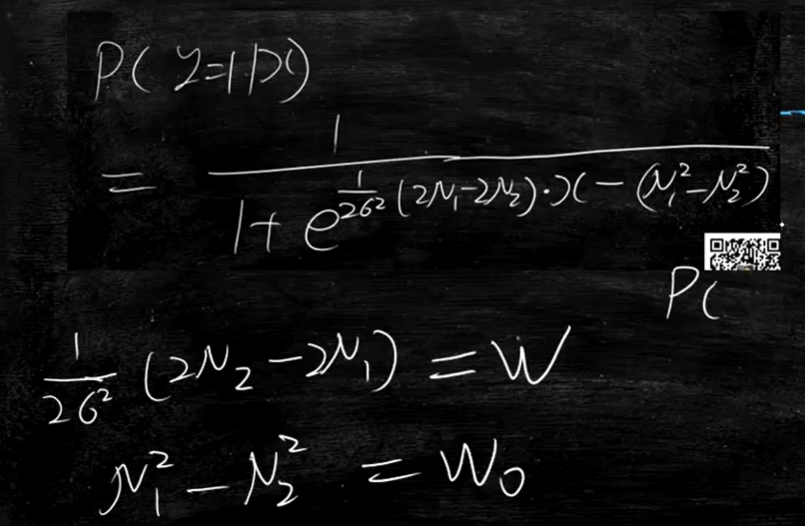 P(y=1|x)
= \frac{1}{1+e^{\frac{1}{2σ^2}(2μ_1-2μ_2)·x-(μ_1^2-μ_2^2)}}
P(
\frac{1}{2σ^2}(2μ_2-2μ_1)=W
μ_1^2-μ_2^2=W_0